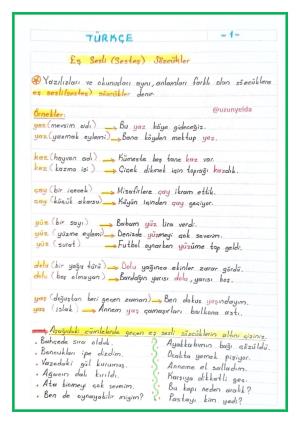 TÜRKÇE
-1-
Eş Sesli (Sesteş) Sözcükler
Yazılışları ve okunuşları aynı, anlamları farklı olan sözcüklere
eş sesli (sesteş) sözcükler denir.
@uzunyelda
Örnekler:
yaz (mevsim adı) → Bu yaz köye gideceğiz.
yaz (yazmak eylemi) → Bana köyden mektup yaz.
kaz (hayvan adı) → Kümeste beş tane kaz var.
kaz (kazma işi) → Çiçek dikmek için toprağı kazdık.
çay (bir içecek) → Misafirlere çay ikram ettik.
çay (küçük akarsu) → Köyün içinden çay geçiyor.
yüz (bir sayı) → Babam yüz lira verdi.
yüz (yüzme eylemi) → Denizde yüzmeyi çok severim.
yüz (surat) → Futbol oynarken yüzüme top geldi.
dolu (bir yağış türü) → Dolu yağınca ekinler zarar gördü.
dolu (boş olmayan) → Bardağın yarısı dolu, yarısı boş.
yaş (doğuştan beri geçen zaman) → Ben dokuz yaşındayım.
yaş (ıslak) → Annem yaş çamaşırları balkona astı.
Aşağıdaki cümlelerde geçen eş sesli sözcüklerin altını çiziniz.
. Bahçede sıra olduk.
. Ayakkabımın bağı çözüldü.
. Boncukları ipe dizdim.
. Ocakta yemek pişiyor.
. Vazodaki gül kurumuş.
. Anneme el salladım.
. Ağacın dalı kırıldı.
. Karşıya dikkatli geç.
. Ata binmeyi çok severim.
. Bu kapı neden aralık?
. Ben de oynayabilir miyim?
. Pastayı kim yedi?